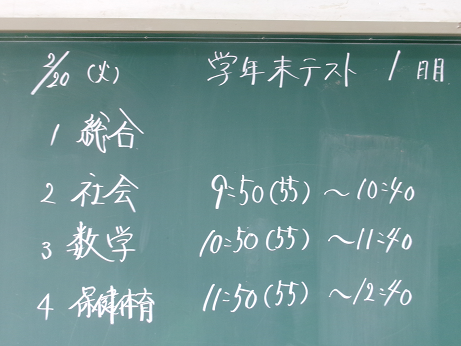 2/20 (火) 学年末テスト 1日目
1 総合
2 社会 9:50(55) ～10:40
3 数学 10:50(55) ～11:40
4 保健体育 11:50(55) ～12:40